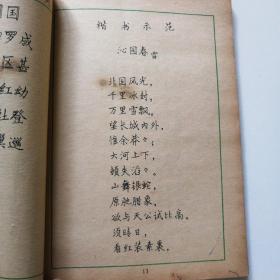 国
罗成
区甚
红幼
社登
冀巡
楷书示范
沁园春雪
北国风光，
千里冰封，
万里雪飘。
望长城内外，
惟余莽々；
大河上下，
顿失滔々。
山舞银蛇，
原驰腊象，
欲与天公试比高。
须晴日，
看红装素裹，
13